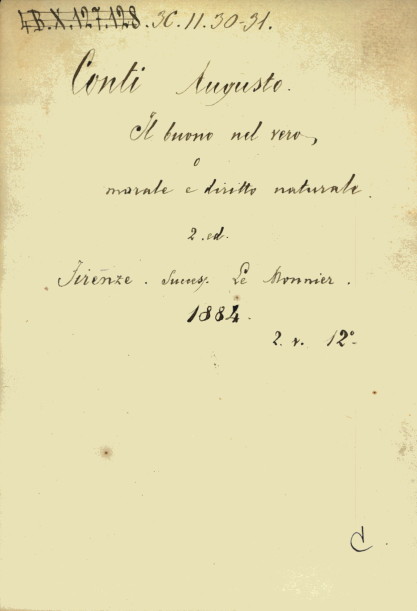 4.B.X.127.128. 3C.11.30-31.
Conti Augusto.
Il buono nel vero,
o
morale e diritto naturale.
2. ed.
Firenze. Success. Le Monnier.
1884.
2. v. 12°
C.